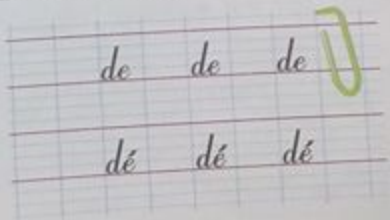 de de de
dé dé dé